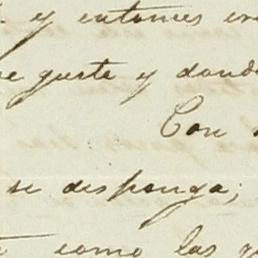 y entonces
guste y
Con
se disponga;
como las